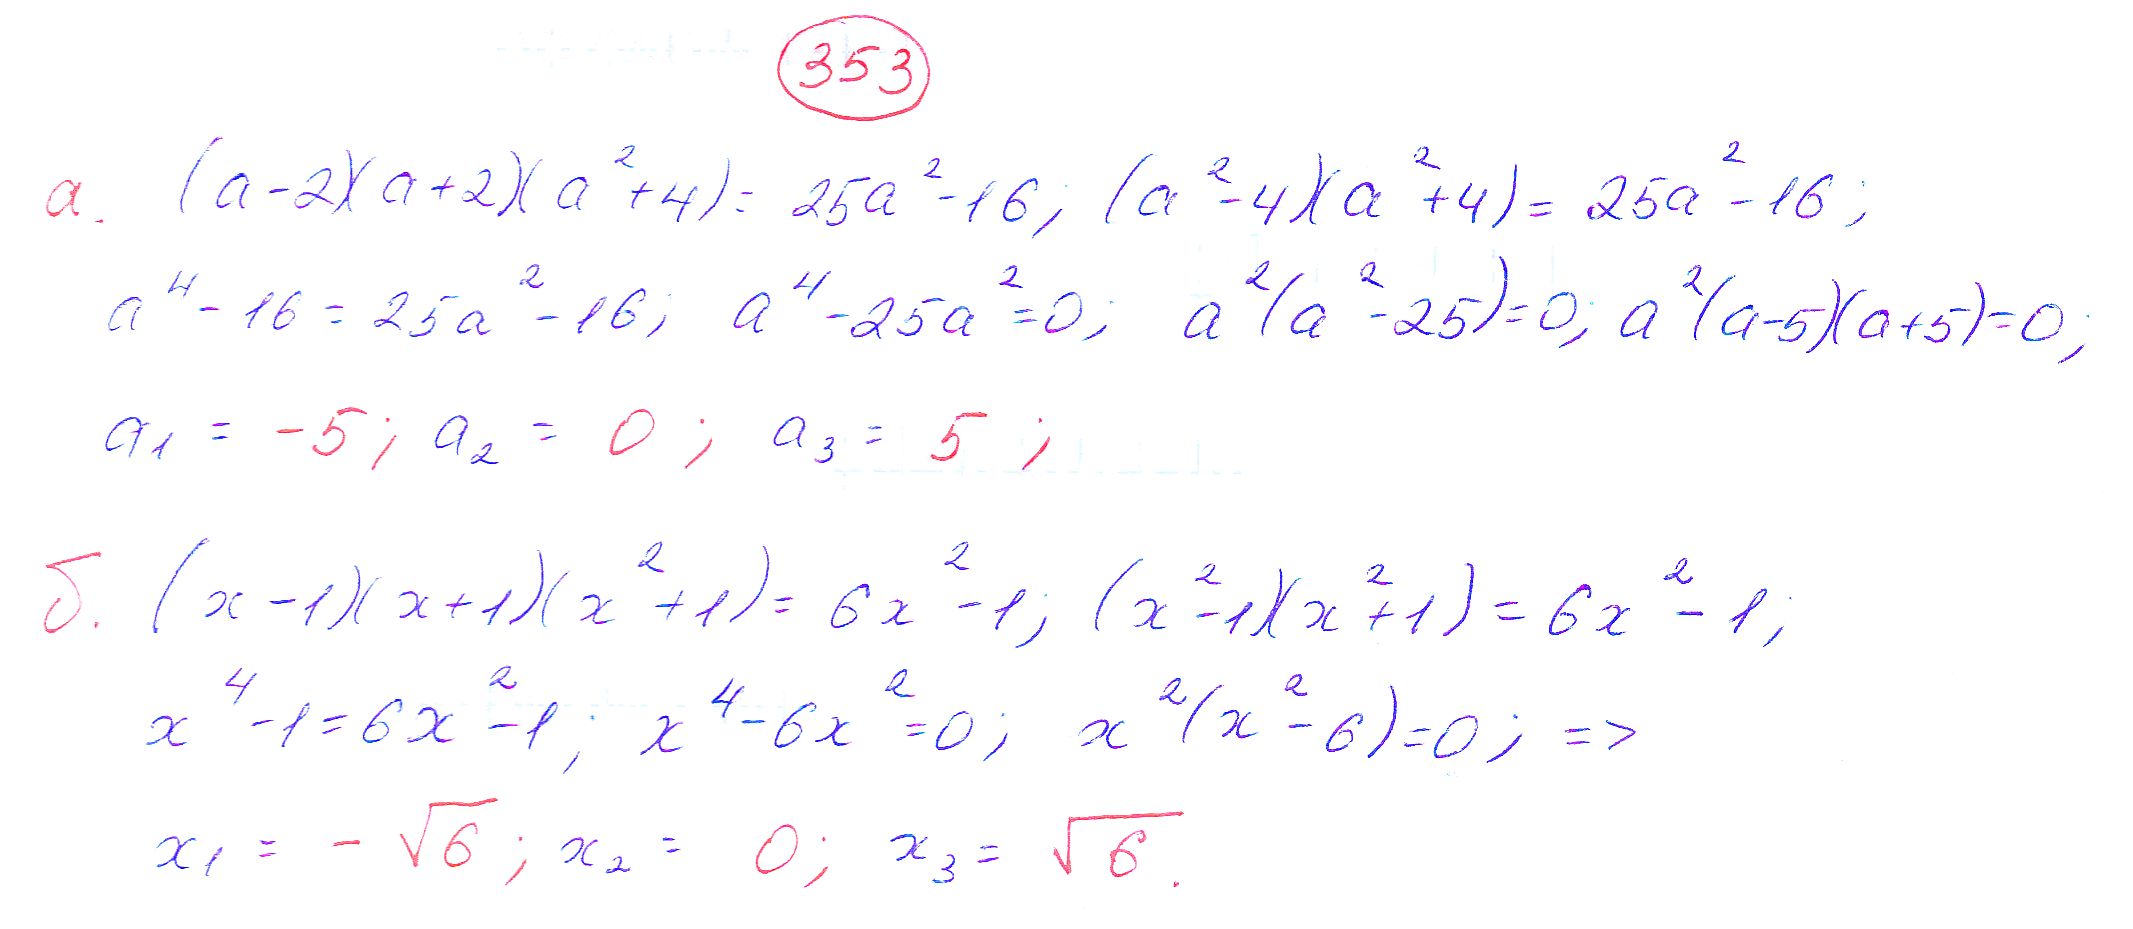 353
а. (a-2)(a+2)(a²+4)= 25a²-16; (a²-4)(a²+4)= 25a²-16;
a⁴-16=25a²-16; a⁴-25a²=0; a²(a²-25)=0; a²(a-5)(a+5)=0;
a₁ = -5; a₂ = 0; a₃ = 5;
б. (x-1)(x+1)(x²+1)= 6x²-1; (x²-1)(x²+1)=6x²-1;
x⁴-1=6x²-1; x⁴-6x²=0; x²(x²-6)=0; =>
x₁ = -√6; x₂ = 0; x₃ = √6.